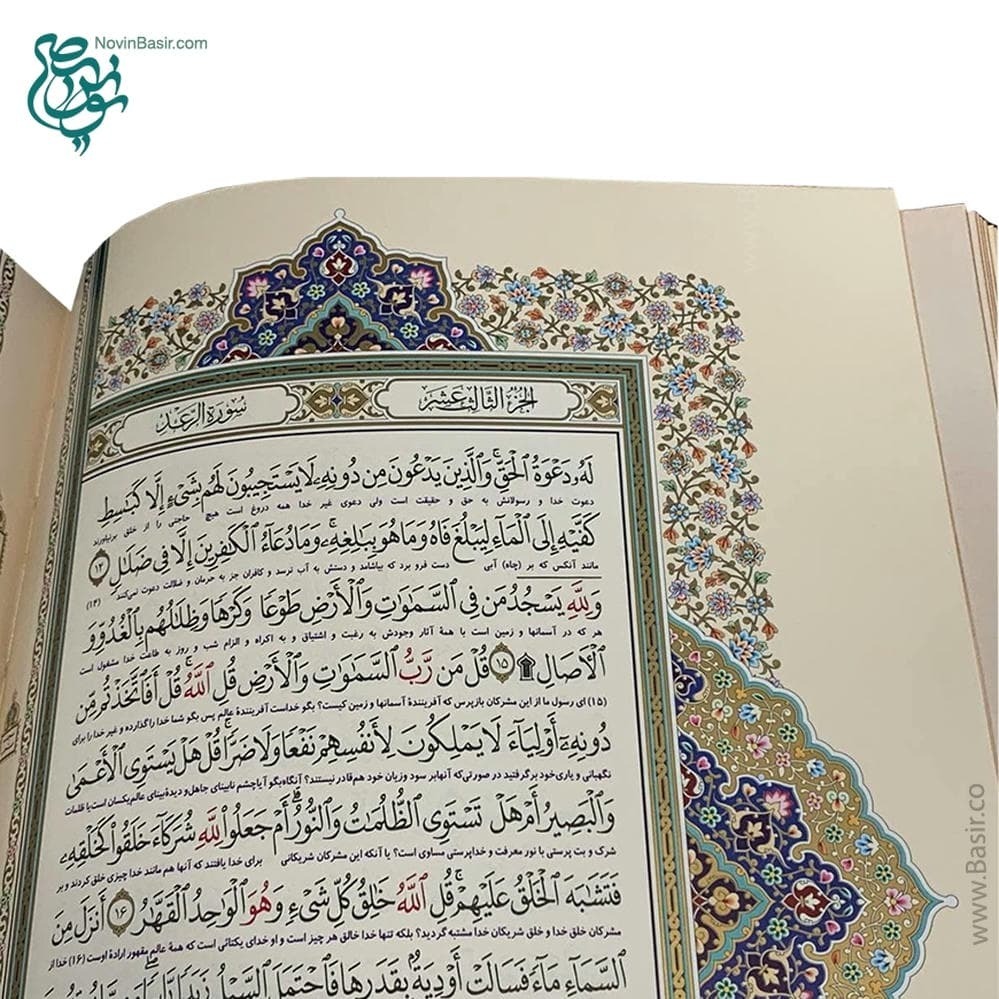 NovinBasir.com
الجزء الثالث عشر
سورة الرعد
لَهُ دَعْوَةُ الْحَقِّ وَالَّذِينَ يَدْعُونَ مِن دُونِهِ لَا يَسْتَجِيبُونَ لَهُم بِشَيْءٍ إِلَّا كَبَاسِطِ
دعوت خدا و رسولانش به حق و حقیقت است ولی دعوی غیر خدا همه دروغ است هیچ حاجتی را از خلق برنیاورند
كَفَّيْهِ إِلَى الْمَاءِ لِيَبْلُغَ فَاهُ وَمَا هُوَ بِبَالِغِهِ وَمَا دُعَاءُ الْكَافِرِينَ إِلَّا فِي ضَلَالٍ ۱۴
مانند آنکس که بر (چاه) آبی دست فرو برد که بیاشامد و دستش به آب نرسد و کافران جز به حرمان و ضلالت دعوت نمی‌کنند (۱۴)
وَلِلَّهِ يَسْجُدُ مَن فِي السَّمَاوَاتِ وَالْأَرْضِ طَوْعًا وَكَرْهًا وَظِلَالُهُم بِالْغُدُوِّ وَ
هر که در آسمانها و زمین است با همهٔ آثار وجودش به رغبت و اشتیاق و به اکراه و الزام شب و روز به طاعت خدا مشغول است
الْآصَالِ ۩ ۱۵ قُلْ مَن رَّبُّ السَّمَاوَاتِ وَالْأَرْضِ قُلِ اللَّهُ قُلْ أَفَاتَّخَذْتُم مِّن
(۱۵) ای رسول ما از این مشرکان بازپرس که آفرینندهٔ آسمانها و زمین کیست؟ بگو خداست آفرینندهٔ عالم پس بگو شما خدا را گذارده و غیر خدا را برای
دُونِهِ أَوْلِيَاءَ لَا يَمْلِكُونَ لِأَنفُسِهِمْ نَفْعًا وَلَا ضَرًّا قُلْ هَلْ يَسْتَوِي الْأَعْمَىٰ
نگهبانی و یاری خود برگرفتید در صورتی که آنها بر سود و زیان خود هم قادر نیستند؟ آنگاه بگو آیا چشم نابینای جاهل و دیدهٔ بینای عالم یکسان است یا ظلمات
وَالْبَصِيرُ أَمْ هَلْ تَسْتَوِي الظُّلُمَاتُ وَالنُّورُ أَمْ جَعَلُوا لِلَّهِ شُرَكَاءَ خَلَقُوا كَخَلْقِهِ
شرک و بت پرستی با نور معرفت و خداپرستی مساوی است؟ یا آنکه این مشرکان شریکانی برای خدا یافتند که آنها هم مانند خدا چیزی خلق کردند و بر
فَتَشَابَهَ الْخَلْقُ عَلَيْهِمْ قُلِ اللَّهُ خَالِقُ كُلِّ شَيْءٍ وَهُوَ الْوَاحِدُ الْقَهَّارُ ۱۶ أَنزَلَ مِنَ
مشرکان خلق خدا و خلق شریکان خدا مشتبه گردید؟ بلکه تنها خدا خالق هر چیز است و او خدای یکتائی است که همهٔ عالم مقهور ارادهٔ اوست (۱۶) خدا از
السَّمَاءِ مَاءً فَسَالَتْ أَوْدِيَةٌ بِقَدَرِهَا فَاحْتَمَلَ السَّيْلُ زَبَدًا رَّابِيًا وَمِمَّا
www.Basir.co